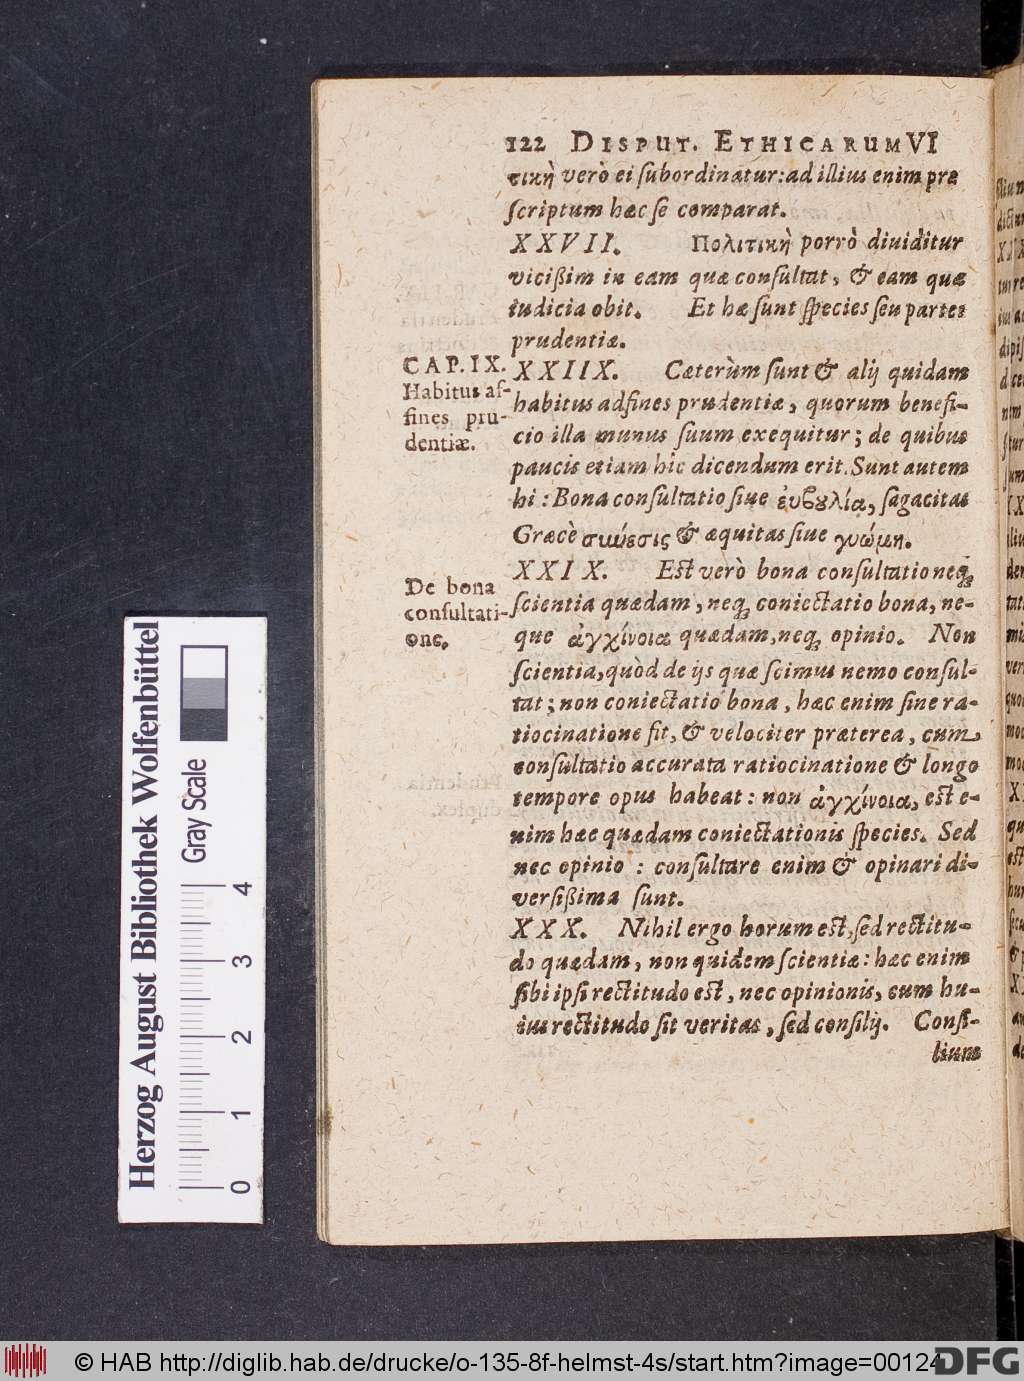 122 DISPUT. ETHICARUM VI
τικὴ verò ei ſubordinatur: ad illius enim præ
ſcriptum hæc ſe comparat.
XXVII. Πολιτικὴ porrò diuiditur
viciſſim in eam quæ conſultat, & eam quæ
iudicia obit. Et hæ ſunt ſpecies ſeu partes
prudentiæ.
CAP. IX.
Habitus af-
fines pru-
dentiæ.
XXIIX. Cæterùm ſunt & alij quidam
habitus adfines prudentiæ, quorum benefi-
cio illa munus ſuum exequitur; de quibus
paucis etiam hic dicendum erit. Sunt autem
hi: Bona conſultatio ſiue ἐυβȣλία, ſagacitas
Græcè σύνεσις & æquitas ſiue γνώμη.
De bona
conſultati-
one.
XXIX. Eſt verò bona conſultatio neq;
ſcientia quædam, neq; coniectatio bona, ne-
que ἀγχίνοια quædam, neq; opinio. Non
ſcientia, quòd de ijs quæ ſcimus nemo conſul-
tat; non coniectatio bona, hæc enim ſine ra-
tiocinatione fit, & velociter præterea, cum
conſultatio accurata ratiocinatione & longo
tempore opus habeat: non ἀγχίνοια, eſt e-
nim hæc quædam coniectationis ſpecies. Sed
nec opinio: conſultare enim & opinari di-
verſiſſima ſunt.
XXX. Nihil ergo horum eſt, ſed rectitu-
do quædam, non quidem ſcientiæ: hæc enim
ſibi ipſi rectitudo eſt, nec opinionis, cum hu-
ius rectitudo ſit veritas, ſed conſilij. Conſi-
lium
Herzog August Bibliothek Wolfenbüttel
Gray Scale
0 1 2 3 4
© HAB http://diglib.hab.de/drucke/o-135-8f-helmst-4s/start.htm?image=00124
DFG